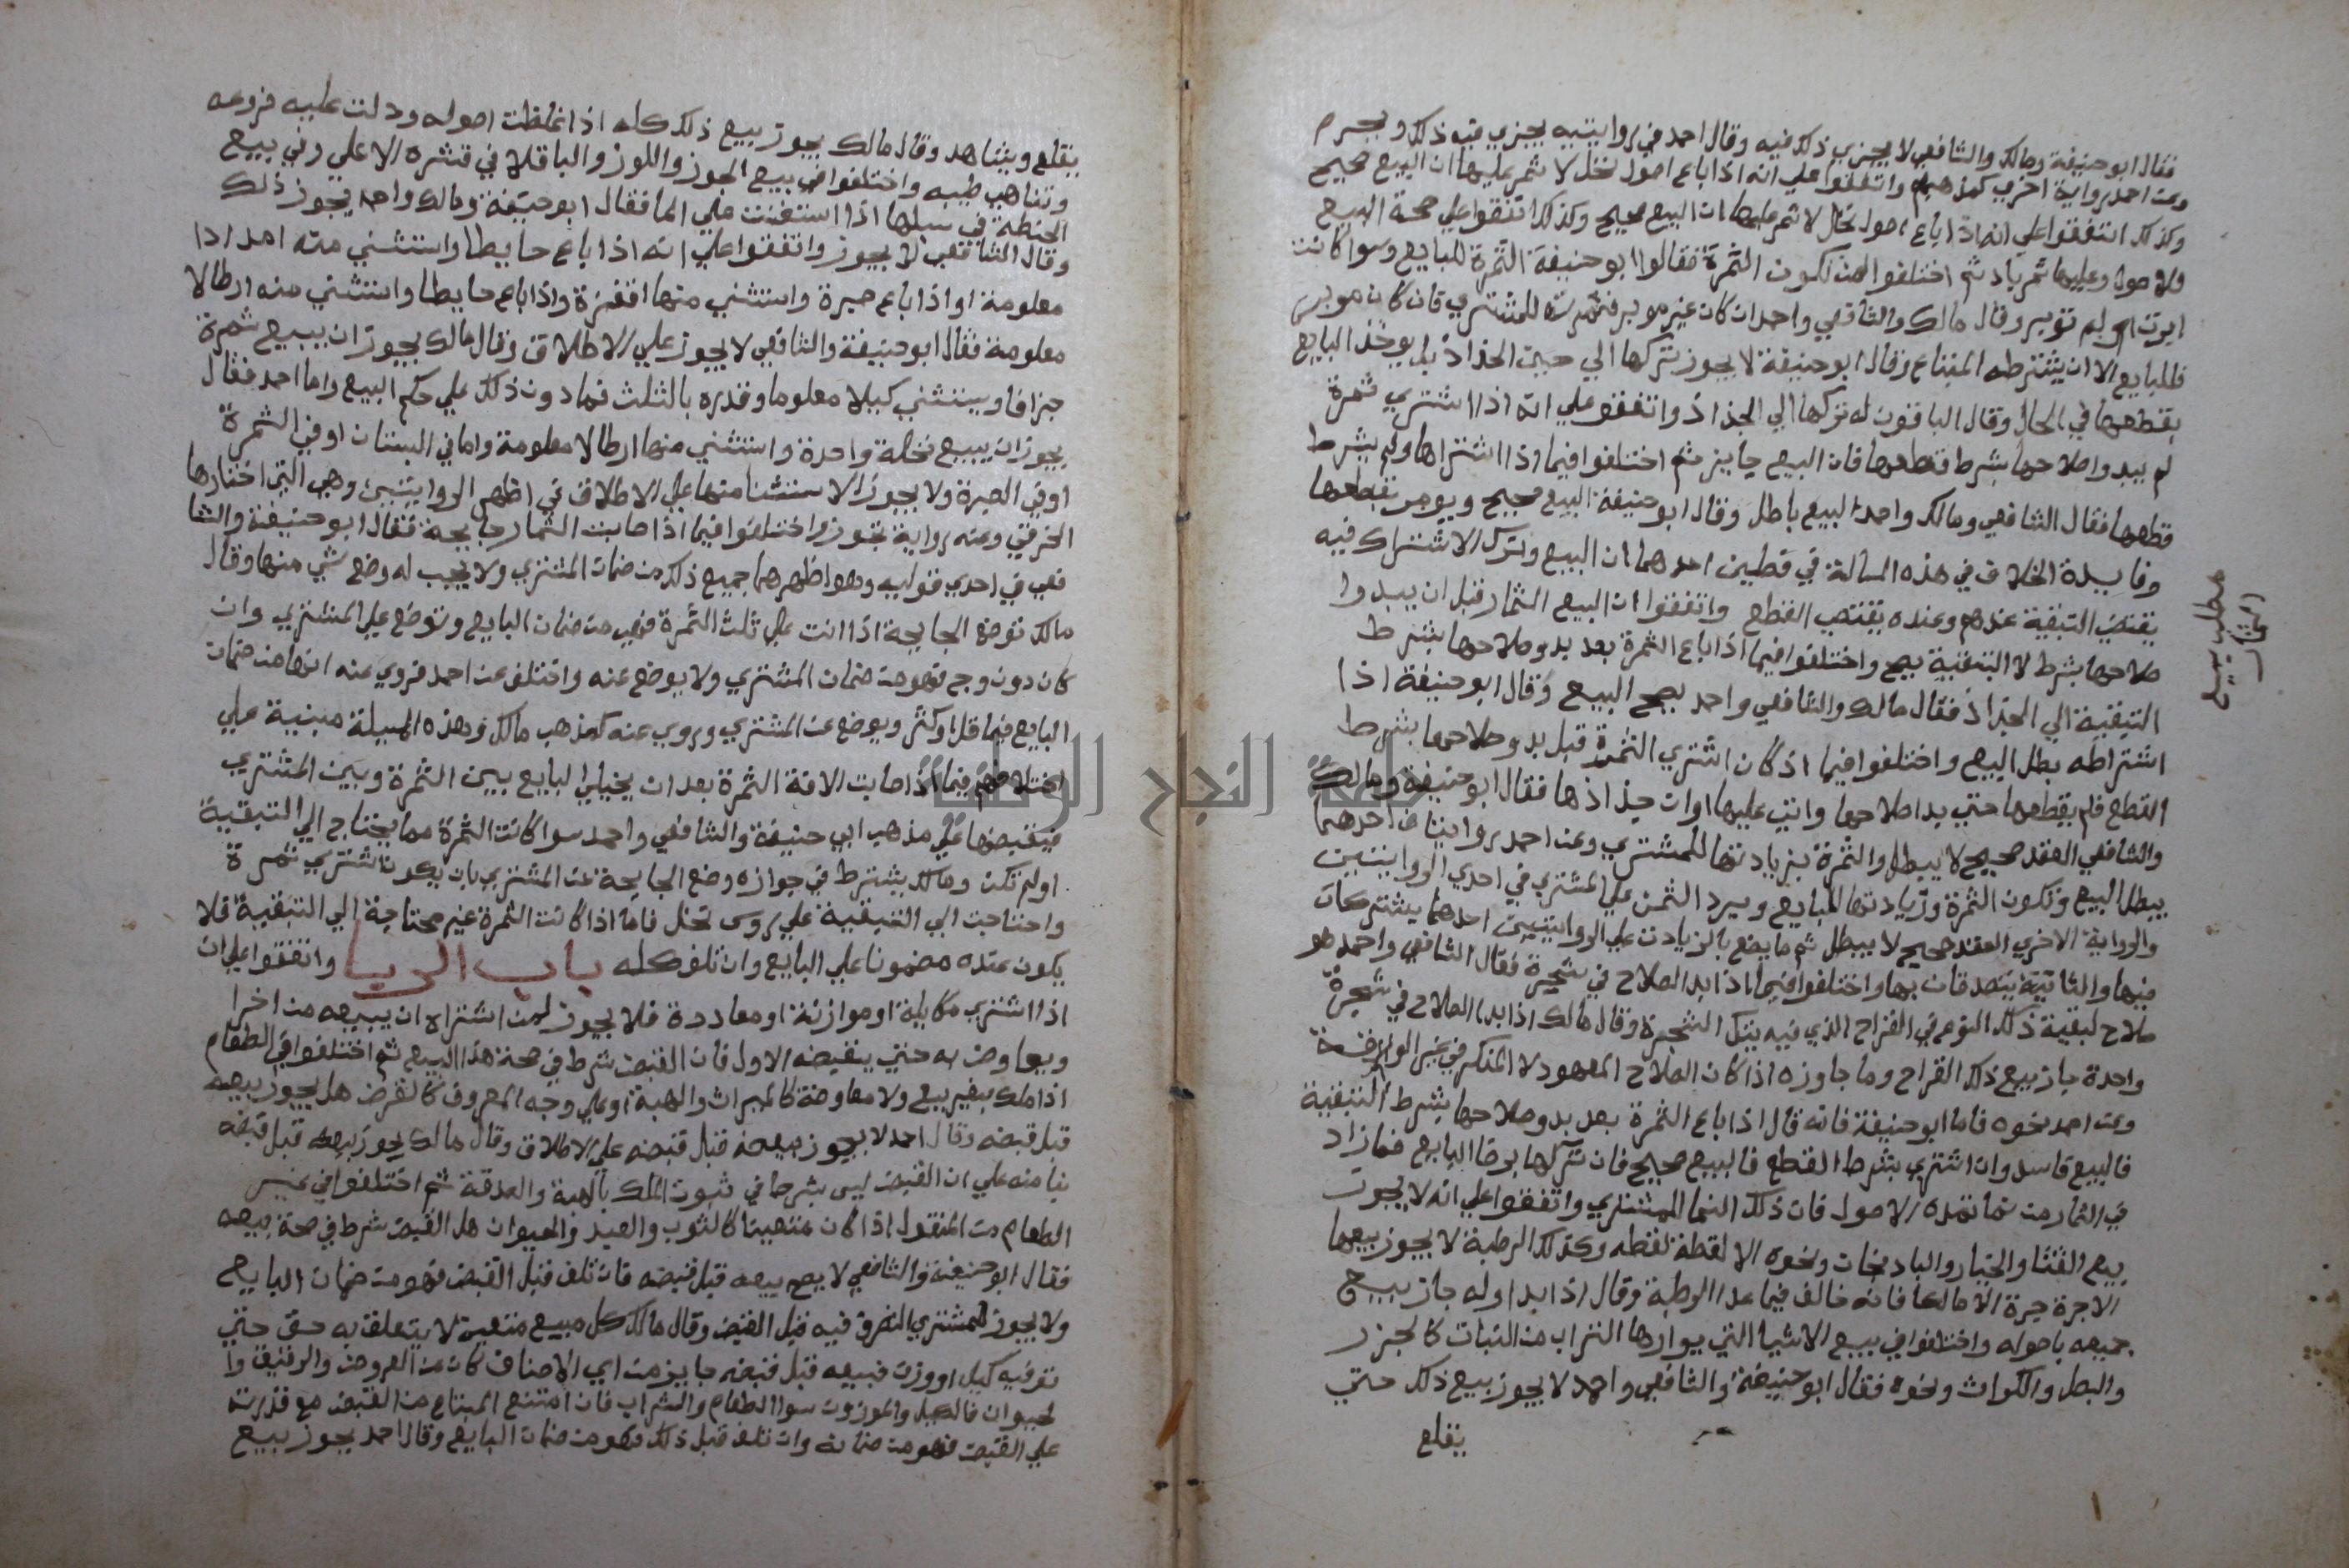 فقال ابو حنيفة ومالك والشافعي لا يجزي ذلك فيه وقال احمد في روايتيه يجزي فيه ذلك ويجرم
وعن احمد رواية اخري كمذهبهم واتفقوا علي انه اذا باع اصول نخل لا ثمر عليها ان البيع صحيح
وكذلك اتفقوا علي انه اذا باع اصول نخل لا ثمر عليها ان البيع صحيح وكذلك اتفقوا علي صحة البيع
للاصول وعليها ثمر باد ثم اختلفوا لمن تكون الثمرة فقالوا ابو حنيفة الثمرة للبايع وسوا كانت
ابرت او لم توبر وقال مالك والشافعي واحمد ان كان غير موبر فثمرته للمشتري فان كان موبر
فللبايع الا ان يشترطه المبتاع وقال ابو حنيفة لا يجوز تركها الي حين الجذاذ بل يوخذ البايع
بقطعها في الحال وقال الباقون له تركها الي الجذاذ واتفقوا علي انه اذا اشتري ثمرة
لم يبد واصلاحها بشرط قطعها فان البيع جايز ثم اختلفوا فيما اذا اشتراها ولم يشرط
قطعها فقال الشافعي ومالك واحمد البيع باطل وقال ابو حنيفة البيع صحيح ويومر بقطعها
وفايدة الخلاف في هذه المسالة في قطين احدهما ان البيع وترك الاشتراك فيه
يقتضي التبقية عندهم وعنده يقتضي القطع واتفقوا ان البيع الثمار قبل ان يبدوا
صلاحها بشرط لا التبقية يصح واختلفوا فيما اذا باع الثمرة بعد بدو صلاحها بشرط
التبقية الي الجذاذ فقال مالك والشافعي واحمد يصح البيع وقال ابو حنيفة اذا
اشتراطه بطل البيع واختلفوا فيما اذ كان اشتري الثمرة قبل بدو صلاحها بشرط
القطع فلم يقطعها حتي بدا صلاحها واتي عليها اوان جذاذها فقال ابو حنيفة ومالك
والشافعي العقد صحيح لا يبطل والثمرة بزيادتها للمشتري وعن احمد روايتان احدهما
يبطل البيع وتكون الثمرة وزيادتها للبايع ويرد الثمن علي المشتري في احدي الروايتين
والرواية الاخري العقد صحيح لا يبطل ثم ما يضع بالزيادة علي الروايتين احدهما يشتركان
فيها والثانية يتصدقان بها واختلفوا فيما اذا بدا الصلاح في شجرة فقال الشافعي واحمد هو
صلاح لبقية ذلك النوع في القراح الذي فيه تلك الشجرة وقال مالك اذا بدا الصلاح في شجرة
واحدة جاز بيع ذلك القراح وما جاوزه اذا كان الصلاح المعهود لا المنكر في غير الوانه
وعن احمد نحوه فاما ابو حنيفة فانه قال اذا باع الثمرة بعد بدو صلاحها بشرط التبقية
فالبيع فاسد وان اشتري بشرط القطع فالبيع صحيح فان تركها برضا البايع فما زاد
في الثمار من نما تمده الاصول فان ذلك النما للمشتري واتفقوا علي انه لا يجوز
بيع القثا والخيار والبادنجان ونحوه الا لقطة لقطه وكذلك الرطبة لا يجوز بيعها
الا جرة جرة الا مالكا فانه خالف فيما عدا الرطبة وقال اذا بدا اوله جاز بيع
جميعه باصوله واختلفوا في بيع الاشيا التي يواردها التراب من النبات كالجزر
والبصل والكراث ونحوه فقال ابو حنيفة والشافعي واحمد لا يجوز بيع ذلك حتي
يقلع
مطلب بيع
يقلع ويشاهد وقال مالك يجوز بيع ذلك كله اذا غلظت اصوله ودلت عليه فروعه
وتناهي طيبه واختلفوا في بيع الجوز واللوز والباقلا في قشره الاعلي وفي بيع
الحنطة في سبلها اذا استغنت علي الما فقال ابو حنيفة ومالك واحمد يجوز ذلك
وقال الشافعي لا يجوز واتفقوا علي انه اذا باع حايطا واستثني منه امدادا
معلومة او اذا باع صبرة واستثني منها اقفزة واذا باع حايطا واستثني منه ارطالا
معلومة فقال ابو حنيفة والشافعي لا يجوز علي الاطلاق وقال مالك يجوز ان يبيع ثمرة
جزافا ويستثني كيلا معلوما وقدره بالثلث فما دون ذلك علي حكم البيع واما احمد فقال
يجوز ان يبيع نخلة واحدة واستثني منها ارطالا معلومة واما في البستان او في الثمرة
او في الصبرة ولا يجوز الاستثنا منها علي الاطلاق في اظهر الروايتين وهي التي اختارها
الخرقي وعنه رواية تجوز واختلفوا فيما اذا اصابت الثمار جايحة فقال ابو حنيفة والشا
فعي في احدي قوليه وهو اظهرهما جميع ذلك من ضمان المشتري ولا يجب له وضع شي منها وقال
مالك توضع الجايحة اذا اتت علي ثلث الثمرة فهي من ضمان البايع وتوضع علي المشتري وان
كان دون وجع فهو من ضمان المشتري ولا يوضع عنه واختلف عن احمد فروي عنه انها من ضمان
البايع فيما قل او كثر ويوضع عن المشتري وروي عنه كمذهب مالك وهذه المسيلة مبنية علي
اختلافهم فيما اذا اصابت الافة الثمرة بعد ان يخلي البايع بين الثمرة وبين المشتري
فيقبضها علي مذهب ابي حنيفة والشافعي واحمد سوا كانت الثمرة مما يحتاج الي التبقية
او لم تكن ومالك يشترط في جوازه وضع الجايحة عن المشتري بان يكون اشتري ثمرة
واحتاجت الي التبقية علي روس نخل فاما اذا كانت الثمرة غير محتاجة الي التبقية فلا
يكون عنده مضمونا علي البايع وان تلف كله باب الربا واتفقوا علي ان
اذا اشتري مكايلة او موازنة او معاددة فلا يجوز لمن اشتراه ان يبيعه من اخر
ويعاوض به حتي يقبضه الاول فان القبض شرط في صحة هذا البيع ثم اختلفوا في الطعام
اذا ملك بغير بيع ولا معاوضة كالميراث والهبة او علي وجه المعروف كالقرض هل يجوز بيعه
قبل قبضه وقال احمد لا يجوز بيعه قبل قبضه علي الاطلاق وقال مالك يجوز بيعه قبل قبضه
بنا منه علي ان القبض ليس بشرط في ثبوت الملك بالهبة والصدقة ثم اختلفوا في غير
الطعام من المنقول اذا كان متعينا كالثوب والعبد والحيوان هل القبض شرط في صحة بيعه
فقال ابو حنيفة والشافعي لا يصح بيعه قبل قبضه فان تلف قبل القبض فهو من ضمان البايع
ولا يجوز للمشتري التصرف فيه قبل القبض وقال مالك كل مبيع متعين لا يتعلق به حق حتي
توفيه كيل او وزن فبيعه قبل قبضه جايز من اي الاصناف كان من العروض والرقيق وا
لحيوان فالمكيل والموزون سوا الطعام والشراب فان امتنع المبتاع من القبض مع قدرته
علي القبض فهو من ضمانه وان تلف قبل ذلك فهو من ضمان البايع وقال احمد يجوز بيع
جامعة النجاح الوطنية